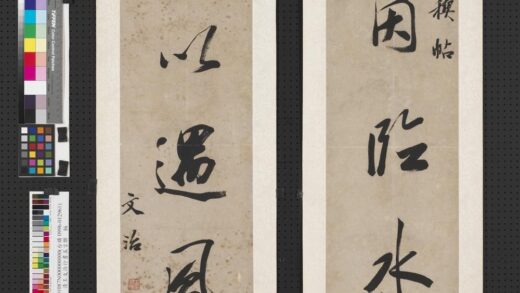 禊帖
因臨水
以遇風
文治